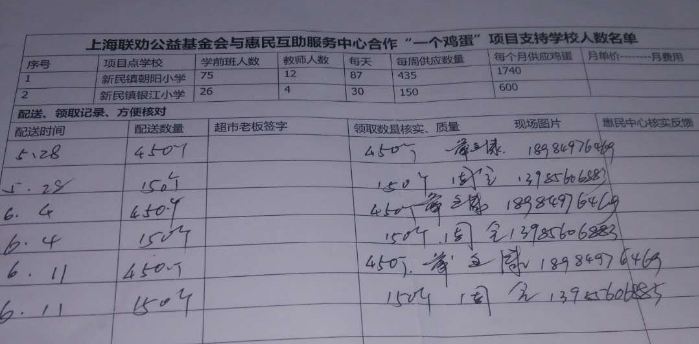 上海联劝公益基金会与惠民互助服务中心合作“一个鸡蛋”项目支持学校人数名单
序号 项目点学校 学前班人数 教师人数 每天 每周供应数量 每个月供应鸡蛋 月单价--------月费用
1 新民镇朝阳小学 75 12 87 435 1740
2 新民镇银江小学 26 4 30 150 600
配送、领取记录、方便核对
配送时间 配送数量 超市老板签字 领取数量核实、质量 现场图片 惠民中心核实反馈
5.28 450个 450个 18984976469
5.28 150个 150个 13985606883
6.4 450个 450个 18984976469
6.4 150个 150个 13985606883
6.11 450个 450个 18984976469
6.11 150个 150个 13985606885